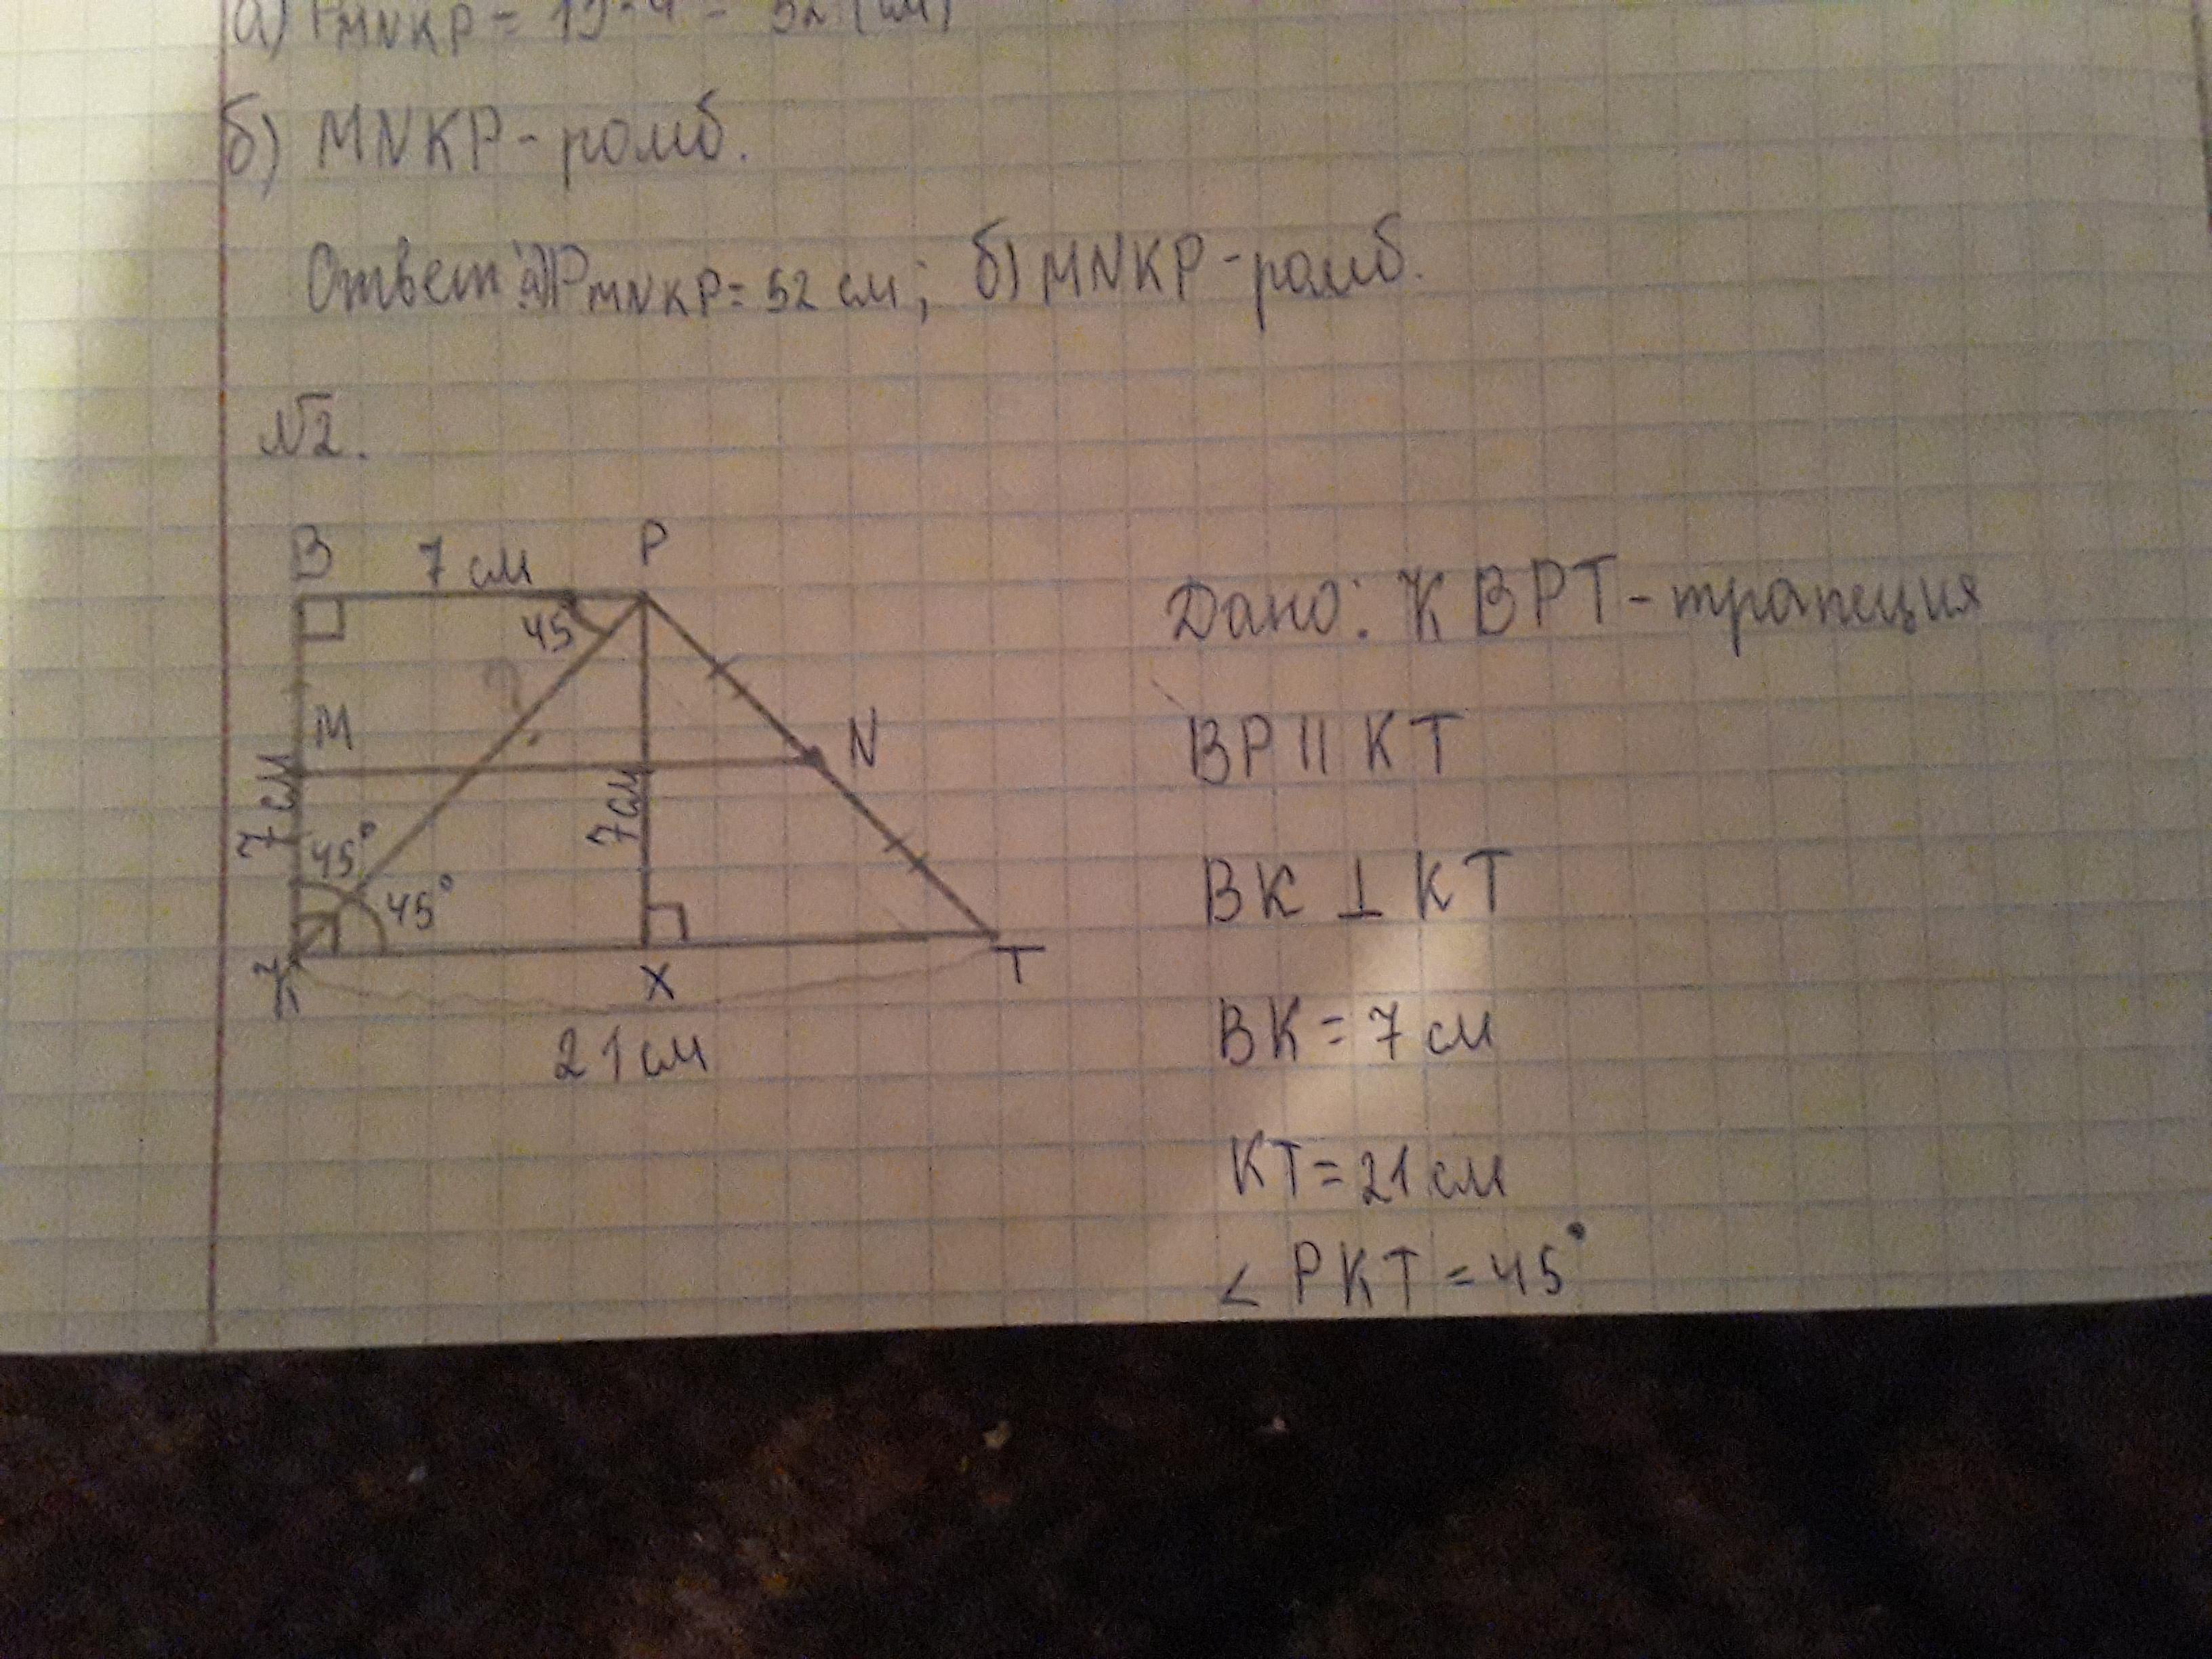 а) PMNKP = 13·4 = 52 (см)
б) MNKP - ромб.
Ответ: а) PMNKP = 52 см; б) MNKP - ромб.
№2.
B 7 см P
45°
?
M N
7 см 7 см
45°
45°
K X T
21 см
Дано: KBPT - трапеция
BP || KT
BK ⊥ KT
BK = 7 см
KT = 21 см
∠ PKT = 45°